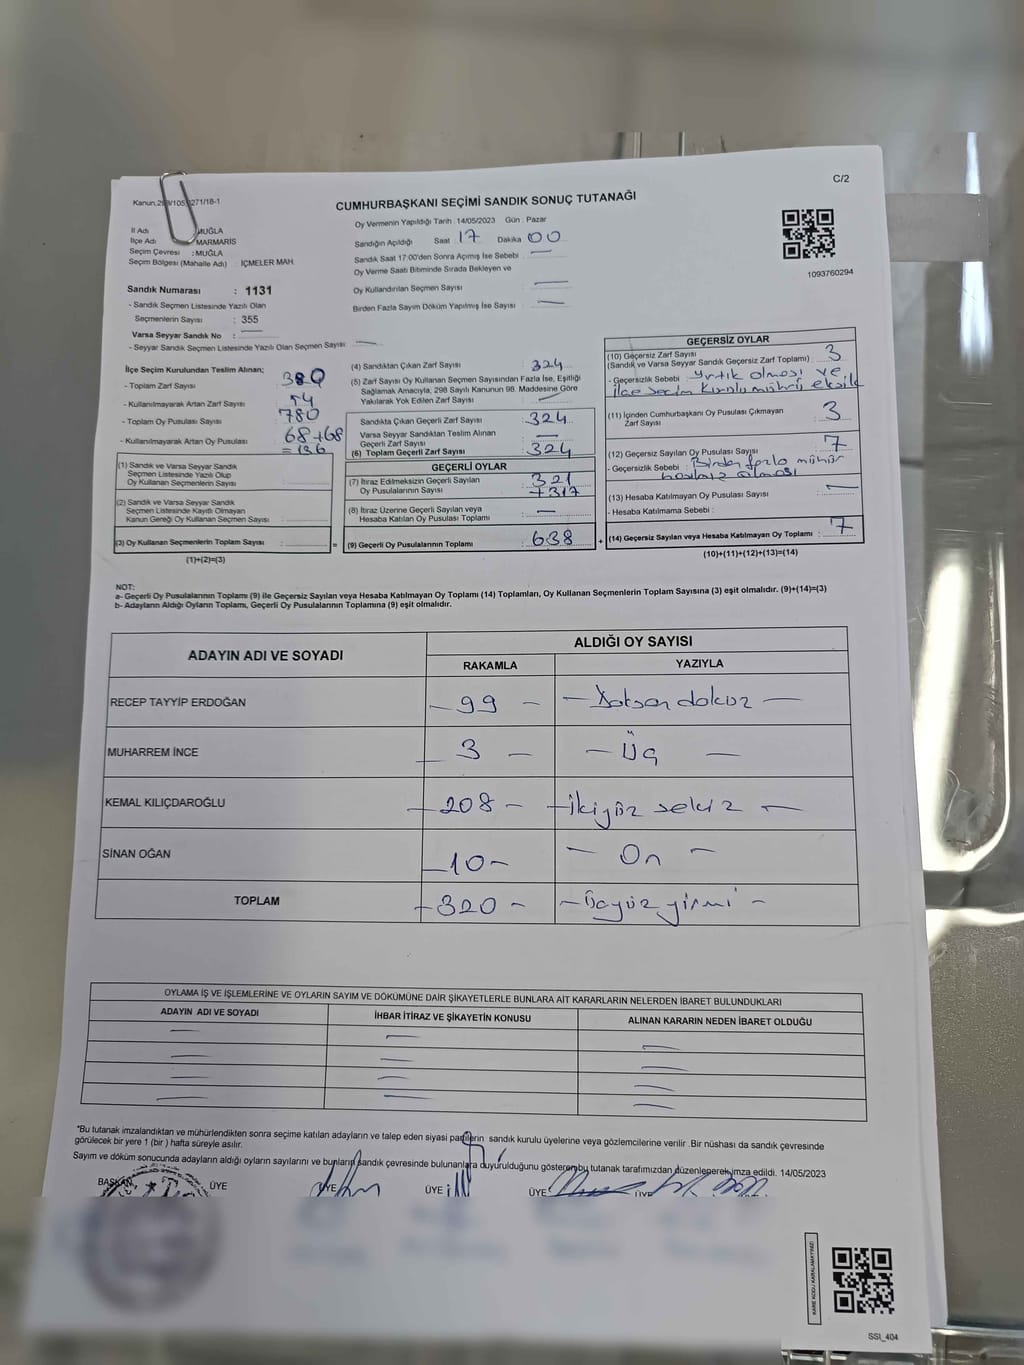 C/2
Kanun,298/105, 271/18-1
CUMHURBAŞKANI SEÇİMİ SANDIK SONUÇ TUTANAĞI
İl Adı : MUĞLA
İlçe Adı : MARMARİS
Seçim Çevresi : MUĞLA
Seçim Bölgesi (Mahalle Adı) : İÇMELER MAH.
Sandık Numarası : 1131
- Sandık Seçmen Listesinde Yazılı Olan
Seçmenlerin Sayısı : 355
Varsa Seyyar Sandık No :
- Seyyar Sandık Seçmen Listesinde Yazılı Olan Seçmen Sayısı:
Oy Vermenin Yapıldığı Tarih : 14/05/2023 Gün : Pazar
Sandığın Açıldığı Saat 17 Dakika 00
Sandık Saat 17:00'den Sonra Açılmış İse Sebebi
Oy Verme Saati Bitiminde Sırada Bekleyen ve
Oy Kullandırılan Seçmen Sayısı :
Birden Fazla Sayım Döküm Yapılmış İse Sayısı :
1093760294
İlçe Seçim Kurulundan Teslim Alınan;
- Toplam Zarf Sayısı : 380
- Kullanılmayarak Artan Zarf Sayısı : 54
- Toplam Oy Pusulası Sayısı : 780
- Kullanılmayarak Artan Oy Pusulası : 68+68
= 136
(1) Sandık ve Varsa Seyyar Sandık
Seçmen Listesinde Yazılı Olup
Oy Kullanan Seçmenlerin Sayısı :
(2) Sandık ve Varsa Seyyar Sandık
Seçmen Listesinde Kayıtlı Olmayan
Kanun Gereği Oy Kullanan Seçmen Sayısı :
(3) Oy Kullanan Seçmenlerin Toplam Sayısı :
(1)+(2)=(3)
(4) Sandıktan Çıkan Zarf Sayısı : 324
(5) Zarf Sayısı Oy Kullanan Seçmen Sayısından Fazla İse, Eşitliği
Sağlamak Amacıyla, 298 Sayılı Kanunun 98. Maddesine Göre
Yakılarak Yok Edilen Zarf Sayısı :
Sandıkta Çıkan Geçerli Zarf Sayısı : 324
Varsa Seyyar Sandıktan Teslim Alınan
Geçerli Zarf Sayısı :
(6) Toplam Geçerli Zarf Sayısı : 324
GEÇERLİ OYLAR
(7) İtiraz Edilmeksizin Geçerli Sayılan
Oy Pusulalarının Sayısı : 321
+317
(8) İtiraz Üzerine Geçerli Sayılan veya
Hesaba Katılan Oy Pusulası Toplamı : —
= (9) Geçerli Oy Pusulalarının Toplamı : 638 +
GEÇERSİZ OYLAR
(10) Geçersiz Zarf Sayısı
(Sandık ve Varsa Seyyar Sandık Geçersiz Zarf Toplamı) : 3
- Geçersizlik Sebebi : Yırtık olması ve
İlçe Seçim Kurulu mührü eksik
(11) İçinden Cumhurbaşkanı Oy Pusulası Çıkmayan
Zarf Sayısı : 3
(12) Geçersiz Sayılan Oy Pusulası Sayısı : 7
- Geçersizlik Sebebi : Birden fazla mühür
(13) Hesaba Katılmayan Oy Pusulası Sayısı : —
- Hesaba Katılmama Sebebi :
(14) Geçersiz Sayılan veya Hesaba Katılmayan Oy Toplamı : 7
(10)+(11)+(12)+(13)=(14)
NOT:
a- Geçerli Oy Pusulalarının Toplamı (9) ile Geçersiz Sayılan veya Hesaba Katılmayan Oy Toplamı (14) Toplamları, Oy Kullanan Seçmenlerin Toplam Sayısına (3) eşit olmalıdır. (9)+(14)=(3)
b- Adayların Aldığı Oyların Toplamı, Geçerli Oy Pusulalarının Toplamına (9) eşit olmalıdır.
ADAYIN ADI VE SOYADI
ALDIĞI OY SAYISI
RAKAMLA YAZIYLA
RECEP TAYYİP ERDOĞAN — 99 — — Doksan dokuz —
MUHARREM İNCE — 3 — — Üç —
KEMAL KILIÇDAROĞLU — 208 — — ikiyüz sekiz —
SİNAN OĞAN — 10 — — On —
TOPLAM — 320 — — Üçyüz yirmi —
OYLAMA İŞ VE İŞLEMLERİNE VE OYLARIN SAYIM VE DÖKÜMÜNE DAİR ŞİKAYETLERLE BUNLARA AİT KARARLARIN NELERDEN İBARET BULUNDUKLARI
ADAYIN ADI VE SOYADI İHBAR İTİRAZ VE ŞİKAYETİN KONUSU ALINAN KARARIN NEDEN İBARET OLDUĞU
*Bu tutanak imzalandıktan ve mühürlendikten sonra seçime katılan adayların ve talep eden siyasi partilerin sandık kurulu üyelerine veya gözlemcilerine verilir .Bir nüshası da sandık çevresinde
görülecek bir yere 1 (bir ) hafta süreyle asılır.
Sayım ve döküm sonucunda adayların aldığı oyların sayılarını ve bunların sandık çevresinde bulunanlara duyurulduğunu gösteren bu tutanak tarafımızdan düzenlenerek imza edildi. 14/05/2023
BAŞKAN ÜYE ÜYE ÜYE ÜYE ÜYE
SSI_404